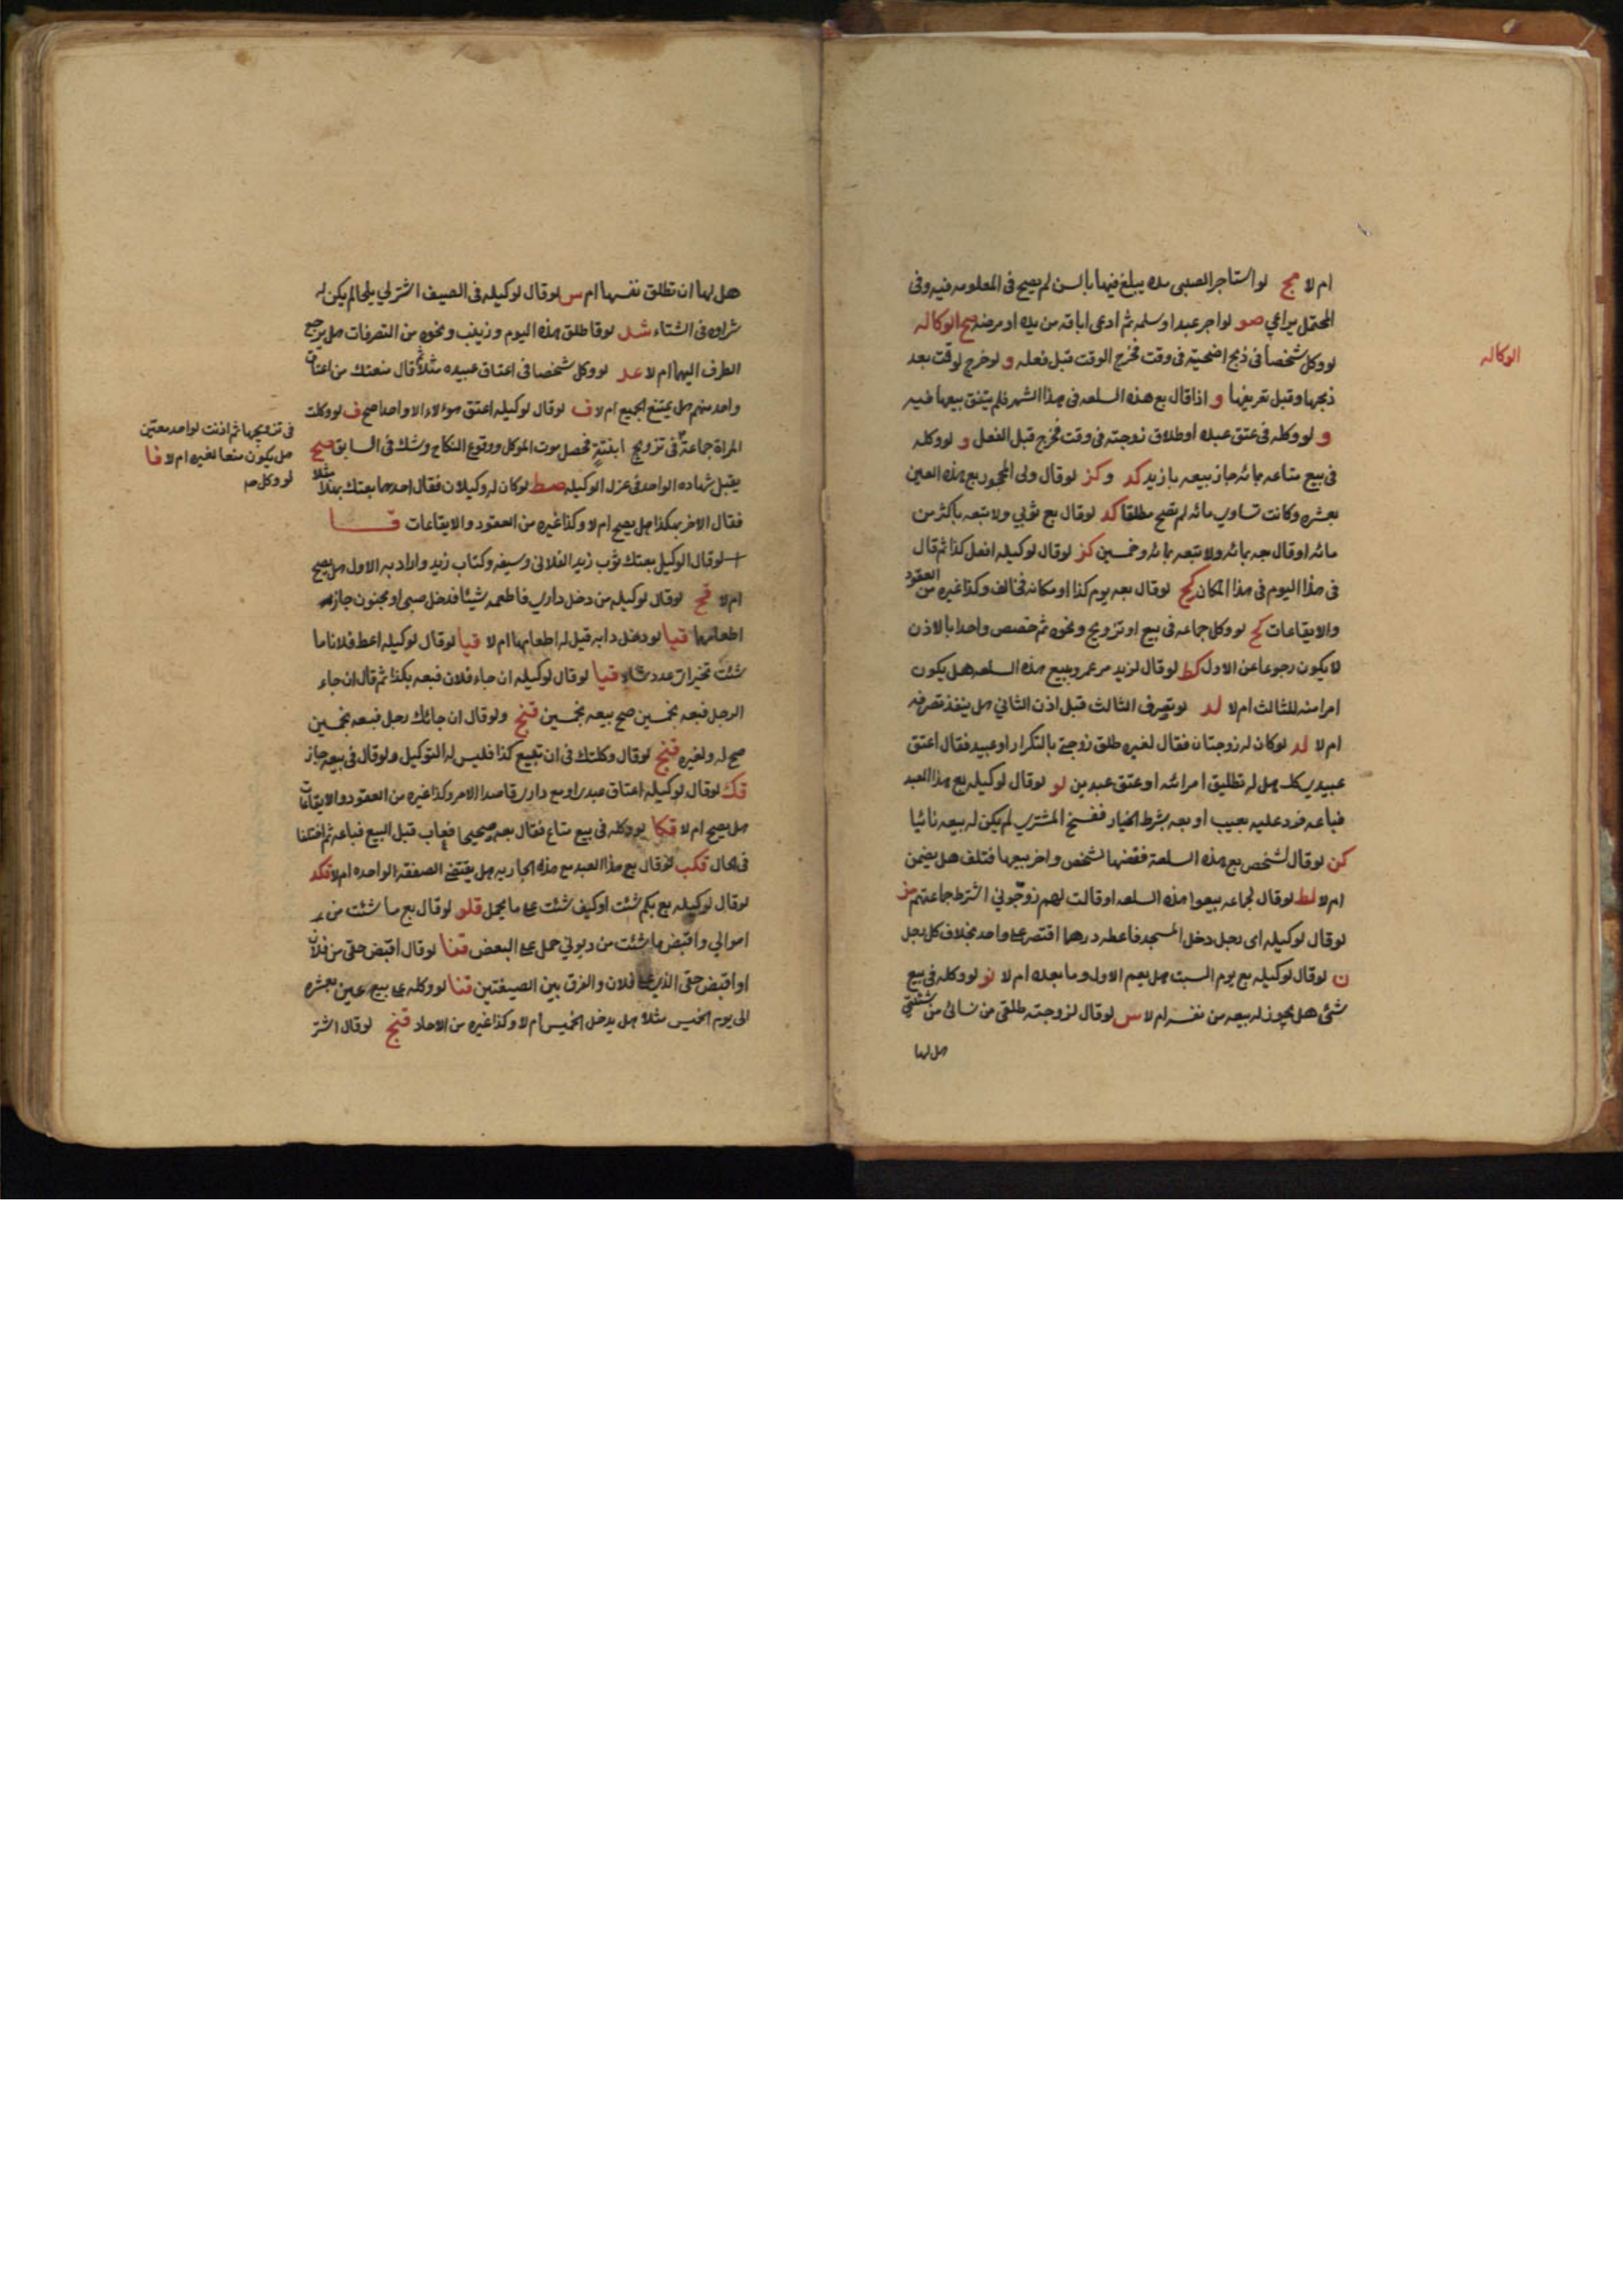 ام لا مج لو استاجر الصبي مده يبلغ فيها بالسن لم يصح في المعلومه فيه وفي
المحتمل يراعي صو لو اجر عبدا وسلمه ثم ادعى اباقه من يده او مرضه صح الوكاله
الوكاله
لو وكل شخصا في ذبح اضحيته في وقت فخرج الوقت قبل فعله و لو خرج لوقت بعد
ذبحها وقبل تفريقها و اذا قال بع هذه السلعه في هذا الشهر فلم يتفق بيعها فيه
و لو وكله في عتق عبده او طلاق زوجته في وقت فخرج قبل الفعل و لو وكله
في بيع متاعه بمائه جاز بيعه بازيد كد و كز لو قال ولى المحجور بع هذه العين
بعشره وكانت تساوي مائه لم يصح مطلقا كد لو قال بع ثوبي ولا تبعه باكثر من
مائه او قال بعه بمائه ولا تبعه بمائه وخمسين كز لو قال لوكيله افعل كذا ثم قال
في هذا اليوم في هذا المكان كح لو قال بعه يوم كذا او مكانه فخالف وكذا غيره من العقود
والايقاعات كح لو وكل جماعه في بيع او تزويج ونحوه ثم خصص واحدا بالاذن
لا يكون رجوعا عن الاول كط لو قال لزيد مر عمرو ببيع هذه السلعه هل يكون
امرا منه للثالث ام لا لد لو تصرف الثالث قبل اذن الثاني هل ينفذ تصرفه
ام لا لد لو كان له زوجتان فقال لغيره طلق زوجتي بالتكرار او عبيد فقال اعتق
عبيدي كلك هل له تطليق امراته او عتق عبدين لو لو قال لوكيله بع هذا العبد
فباعه فرد عليه بعيب او بعه بشرط الخيار ففسخ المشتري لم يكن له بيعه ثانيا
كن لو قال لشخص بع هذه السلعة فقبضها لشخص واخر بيعها فتلف هل يضمن
ام لا لط لو قال لجماعه بيعوا هذه السلعه او قالت لهم زوجوني اشترط جماعتهم مز
لو قال لوكيله اى رجل دخل المسجد فاعطه درهما اقتصر على واحد بخلاف كل رجل
ن لو قال لوكيله بع يوم السبت هل يعم الاول وما بعده ام لا نو لو وكله في بيع
شئ هل يجوز له بيعه من نفسه ام لا س لو قال لزوجته طلقي من نسائي من شئتي
هل لها
هل لها ان تطلق نفسها ام س لو قال لوكيله في الصيف اشتر لي ثلجا لم يكن له
شراوه في الشتاء شد لو قا طلق هذه اليوم وزينب ونحوه من التصرفات هل يرجع
الطرف اليهما ام لا عد لو وكل شخصا في اعتاق عبيده مثلا ثم قال منعتك من اعتاق
واحد منهم هل يمتنع الجميع ام لا ف لو قال لوكيله اعتق هؤلاء الا واحدا صح ف لو وكلت
في تزويجها ثم اذنت لواحد معين
هل يكون منعا لغيره ام لا فا
لو وكل صح
المراة جماعة في تزويج ابنته فحصل موت الموكل ووقوع النكاح وشك في السابق صح
يقبل شهاده الواحد في عزل الوكيل صط لو كان له وكيلان فقال احدهما بعتك بهذا مثلا
فقال الاخر بهكذا هل يصح ام لا وكذا غيره من العقود والايقاعات قا
لو قال الوكيل بعتك ثوب زيد الفلاني وسيفه وكتاب زيد واراد به الاول هل يصح
ام لا قح لو قال لوكيله من دخل داري فاطعمه شيئا فدخل صبي او مجنون جاز
اطعامها قيا لو دخل دابه قيل له اطعامها ام لا قيا لو قال لوكيله اعط فلانا ما
شئت تخير قيا لو قال لوكيله ان جاء فلان فبعه بكذا ثم قال ان جاء
الرجل فبعه بخمسين صح بيعه بخمسين قنح ولو قال ان جائك رجل فبعه بخمسين
صح له ولغيره قنح لو قال وكلتك في ان تبيع كذا فليس له التوكيل ولو قال في بيعه جاز
قك لو قال لوكيله اعتاق عبدي او بع داري قاصدا الامر وكذا غيره من العقود والايقاعات
هل يصح ام لا قكا لو وكله في بيع متاع فقال بعه صحيحا فعاب قبل البيع فباعه ثم اختلفا
في الحال قكب لو قال بع هذا العبد مع هذه الجاريه هل يقتضي الصفقة الواحده ام لا قكد
لو قال لوكيله بع بكم شئت او كيف شئت على ما يحمل قلو لو قال بع ما شئت من
اموالي واقبض ما شئت من ديوني حمل على البعض قنا لو قال اقبض حقي من فلان
او اقبض حقي الذي على فلان والفرق بين الصيغتين قنا لو وكله على بيع عين بعشره
الى يوم الخميس مثلا هل يدخل الخميس ام لا وكذا غيره من الاحاد قنح لو قال اشتر